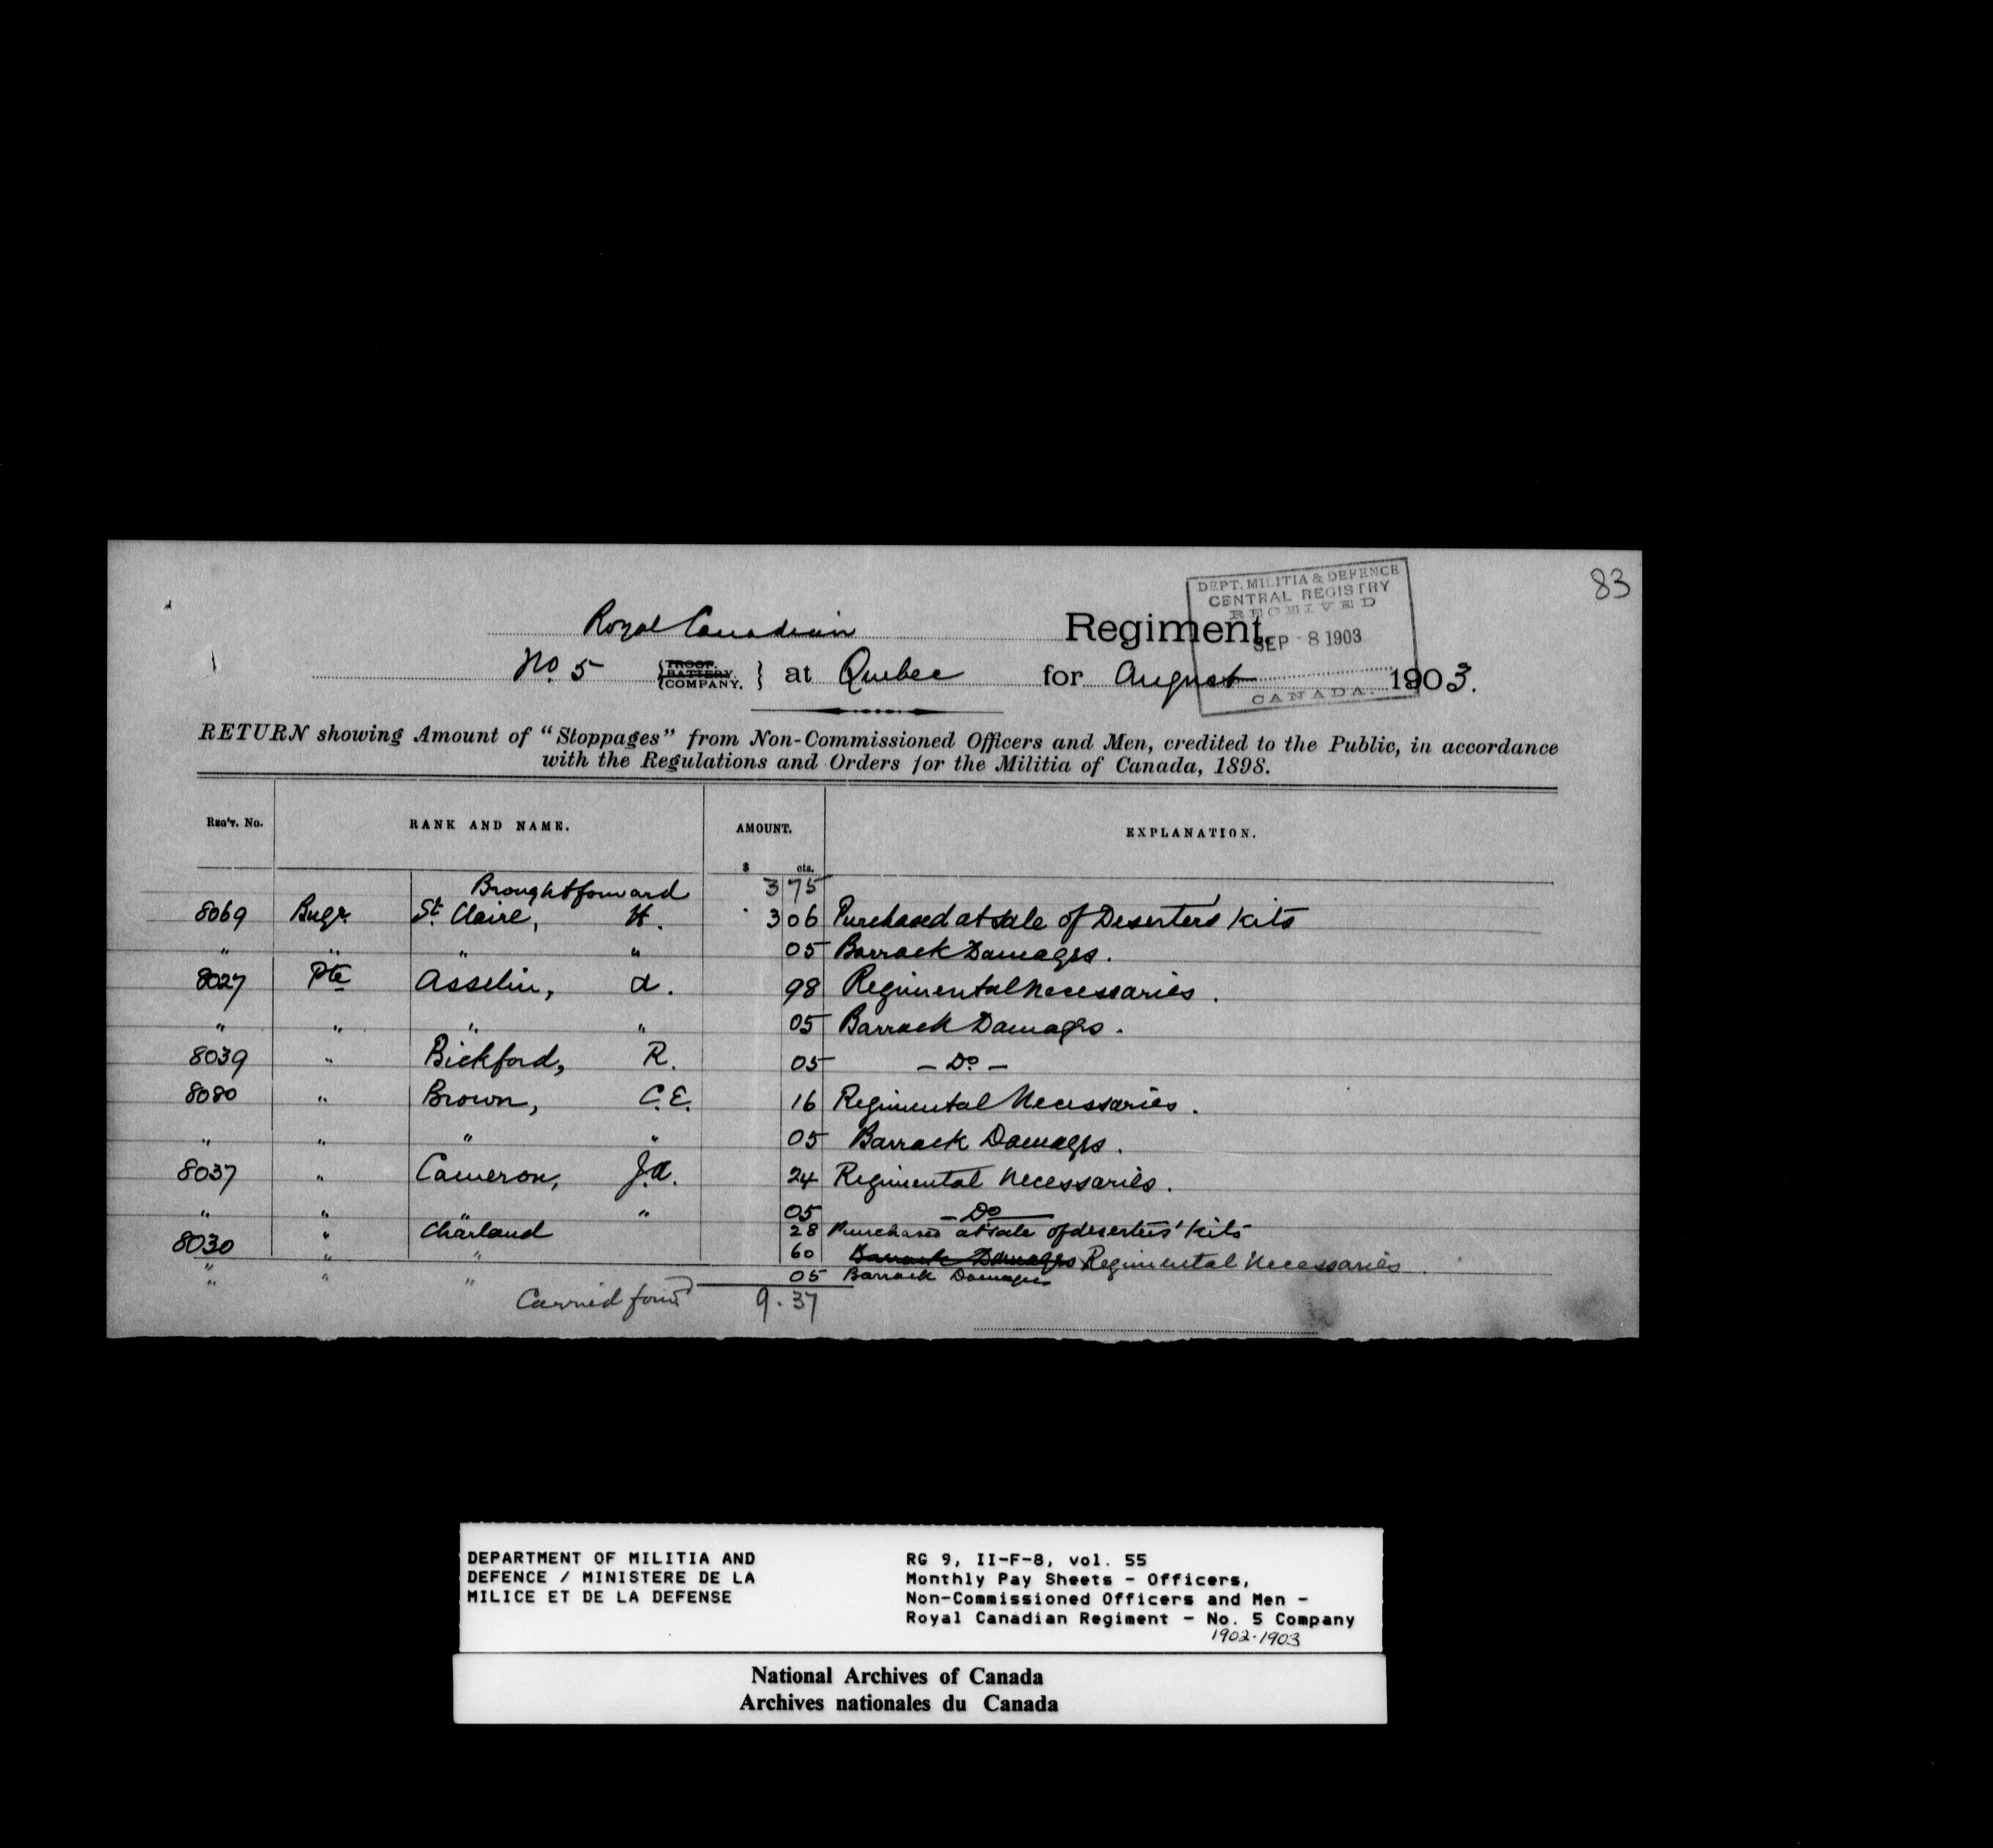 83
DEPT. MILITIA & DEFENCE
CENTRAL REGISTRY
RECEIVED
SEP - 8 1903
CANADA.
Royal Canadian Regiment.
No. 5 { TROOP. BATTERY. COMPANY. } at Quebec for August 1903.
RETURN showing Amount of "Stoppages" from Non-Commissioned Officers and Men, credited to the Public, in accordance
with the Regulations and Orders for the Militia of Canada, 1898.
REG'T. No. RANK AND NAME. AMOUNT. EXPLANATION.
$ cts.
Brought forward 3 75
8069 Bugr. St. Claire, H. 3 06 Purchased at sale of Deserters Kits
" " " " 05 Barrack Damages.
8027 Pte Asselin, A. 98 Regimental Necessaries.
" " " " 05 Barrack Damages.
8039 " Bickford, R. 05 - Do -
8080 " Brown, C.E. 16 Regimental Necessaries.
" " " " 05 Barrack Damages.
8037 " Cameron, J.A. 24 Regimental Necessaries.
" " " " 05 - Do -
8030 " Charland 28 Purchased at sale of deserters' Kits
" " " 60 Barrack Damages Regimental Necessaries.
" " " 05 Barrack Damages
Carried forwd 9.37
DEPARTMENT OF MILITIA AND
DEFENCE / MINISTERE DE LA
MILICE ET DE LA DEFENSE
RG 9, II-F-8, vol. 55
Monthly Pay Sheets - Officers,
Non-Commissioned Officers and Men -
Royal Canadian Regiment - No. 5 Company
1902-1903
National Archives of Canada
Archives nationales du Canada